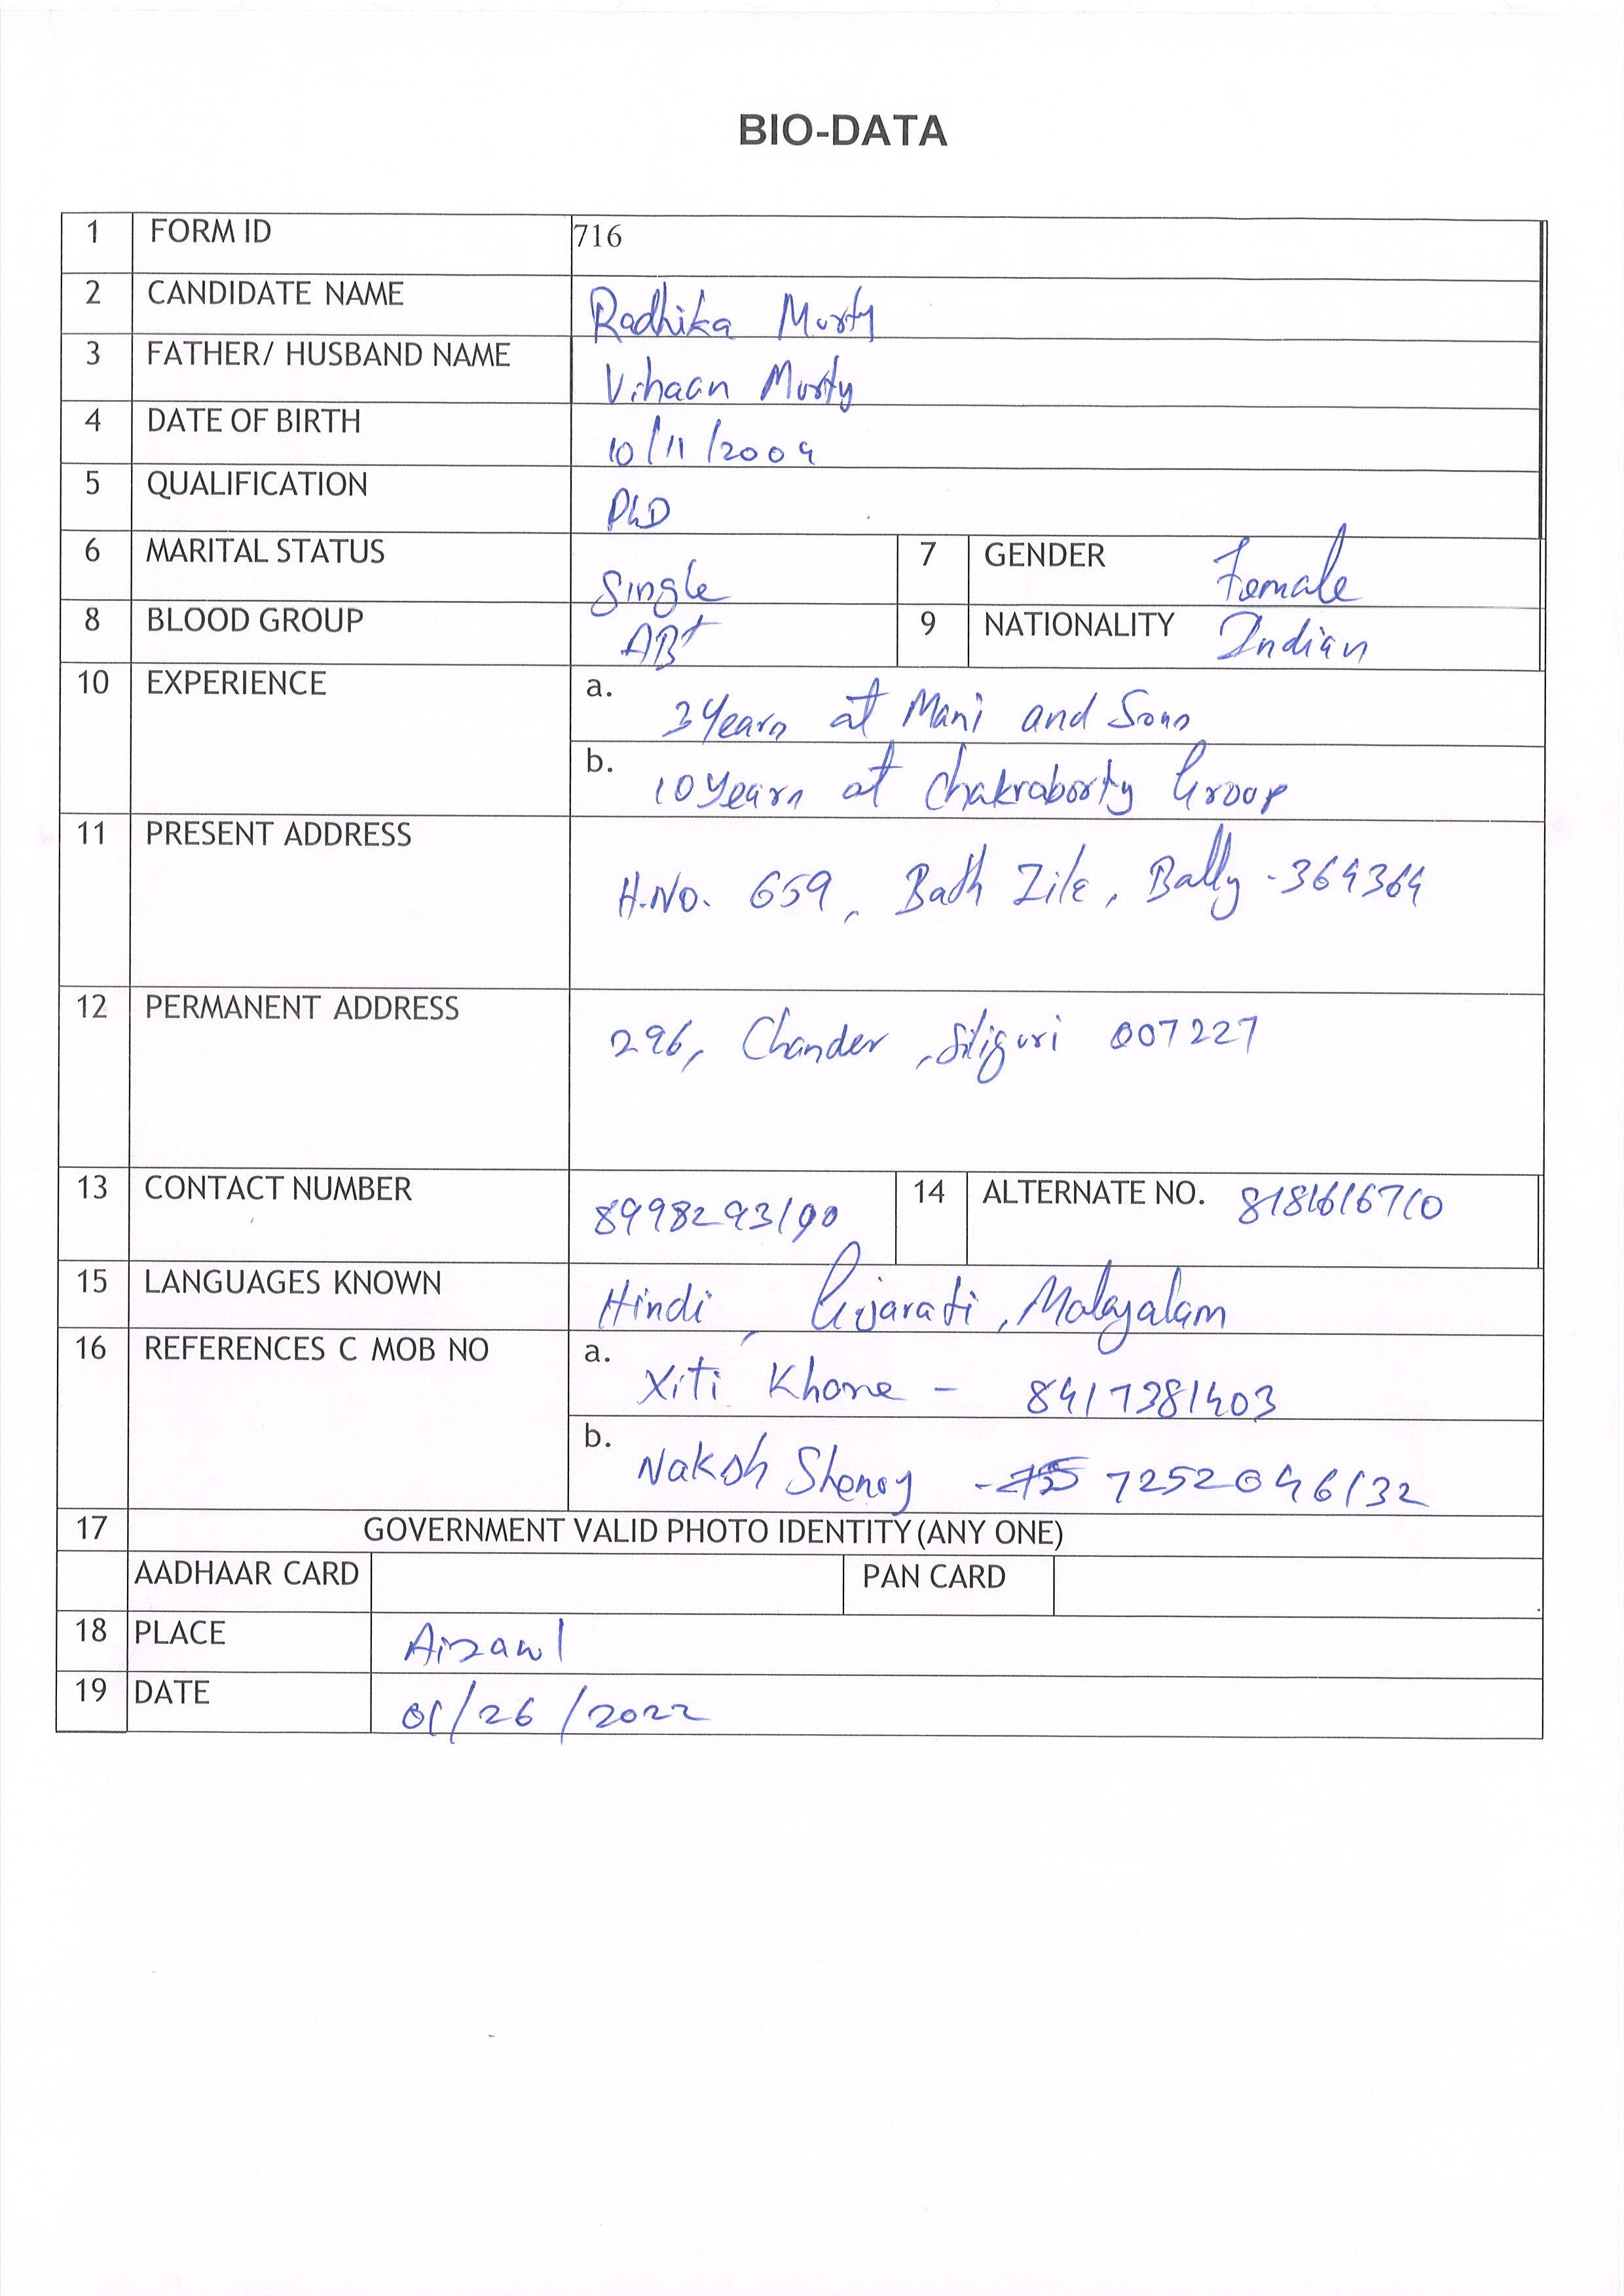 BIO-DATA
1 FORM ID 716
2 CANDIDATE NAME Radhika Murty
3 FATHER/ HUSBAND NAME Vihaan Murty
4 DATE OF BIRTH 10/11/2004
5 QUALIFICATION PhD
6 MARITAL STATUS Single 7 GENDER Female
8 BLOOD GROUP AB+ 9 NATIONALITY Indian
10 EXPERIENCE a. 3 Years at Mani and Sons
b. 10 Years at Chakraborty Group
11 PRESENT ADDRESS H.No. 659, Bath Zile, Bally - 364364
12 PERMANENT ADDRESS 296, Chander, Siliguri 007227
13 CONTACT NUMBER 8998293190 14 ALTERNATE NO. 8181616710
15 LANGUAGES KNOWN Hindi, Gujarati, Malayalam
16 REFERENCES C MOB NO a. Xiti Khare - 8417381403
b. Naksh Shenoy - 7252046132
17 GOVERNMENT VALID PHOTO IDENTITY (ANY ONE)
AADHAAR CARD PAN CARD
18 PLACE Aizawl
19 DATE 01/26/2022